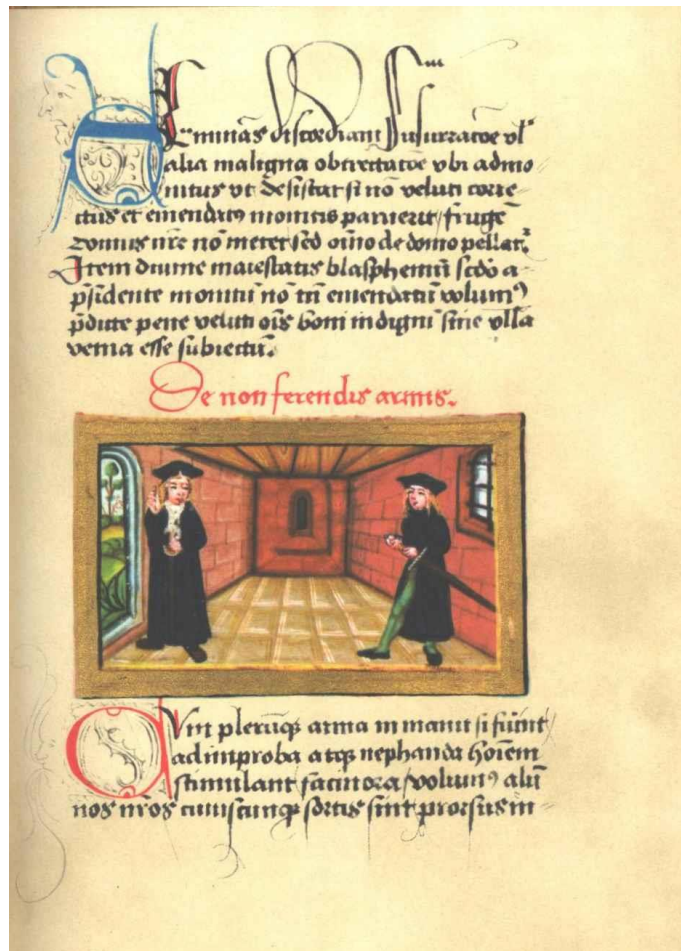 eminās discordiam Susurracōe vl'
alia maligna obtrectacōe vbi admo
nitus vt desistat si nō veluti corre
ctus et emendatꝰ monitis paruerit / frugē
domus nr̄e nō metet sed oīno de domo pellat᷑.
Item diuine maiestatis blasphemū scd̄o a
p̄sidente monitū nō tn̄ emendatū volumꝰ
p̄dicte pene veluti oīs boni indignū sine vlla
venia esse subiectū.
De non ferendis armis.
QVm plerūqꝫ arma in manu si fūint
ad improba atqꝫ nephanda hoīem
stimulant facinora / volumꝰ alū
nos nr̄os cuiuscunqꝫ sortis sint prorsus in